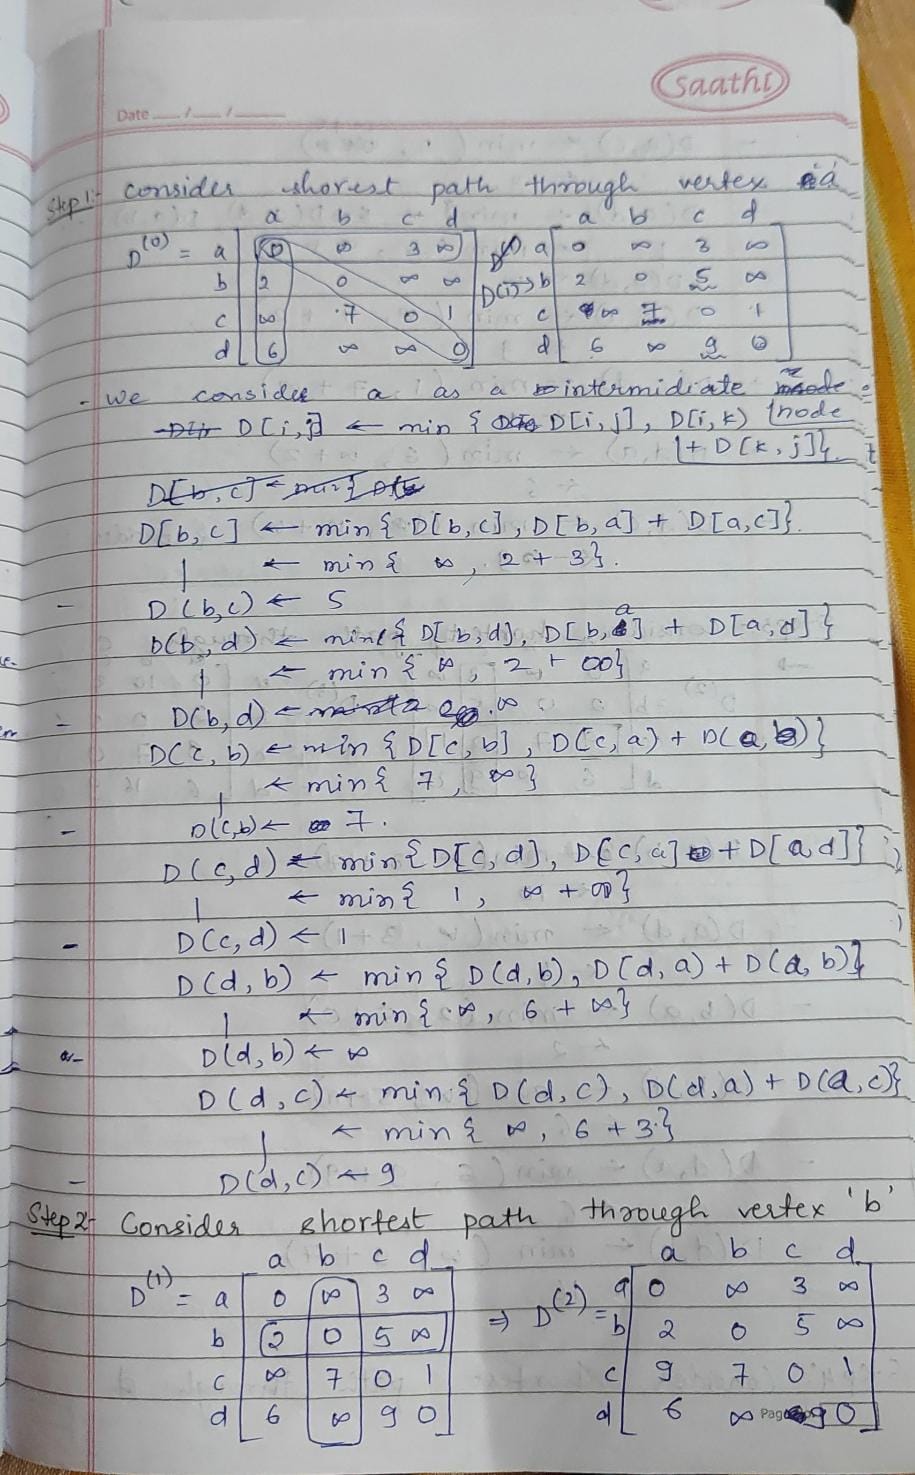 saathi
Date / /
Step 1:- consider shorest path through vertex a
a b c d a b c d
D(0) = a 0 ∞ 3 ∞ a 0 ∞ 3 ∞
b 2 0 ∞ ∞ D(1)→ b 2 0 5 ∞
c ∞ 7 0 1 c ∞ 7 0 1
d 6 ∞ ∞ 0 d 6 ∞ 9 0
- we consider a as a intermidiate node
D[i,j] ← min { D[i,j], D[i,k)
+ D[k,j]}
D[b,c] ← min {
D[b,c] ← min { D[b,c], D[b,a] + D[a,c]}.
← min { ∞, 2 + 3}.
- D(b,c) ← 5
D(b,d) ← min { D[b,d], D[b,a] + D[a,d]}
← min { ∞, 2 + ∞}
- D(b,d) ← ∞
D(c,b) ← min {D[c,b], D[c,a) + D(a,b)}
← min { 7, ∞}
- D(c,b) ← 7.
D(c,d) ← min{D[c,d], D[c,a] + D[a,d]}
← min { 1, ∞ + ∞}
- D(c,d) ← 1
D(d,b) ← min { D(d,b), D(d,a) + D(a,b)}
← min { ∞, 6 + ∞}
D(d,b) ← ∞
D(d,c) ← min { D(d,c), D(d,a) + D(a,c)}
← min { ∞, 6 + 3}
- D(d,c) ← 9
Step 2- Consider shortest path through vertex 'b'
a b c d a b c d
D(1) = a 0 ∞ 3 ∞ ⇒ D(2) = a 0 ∞ 3 ∞
b 2 0 5 ∞ b 2 0 5 ∞
c ∞ 7 0 1 c 9 7 0 1
d 6 ∞ 9 0 d 6 ∞ 9 0